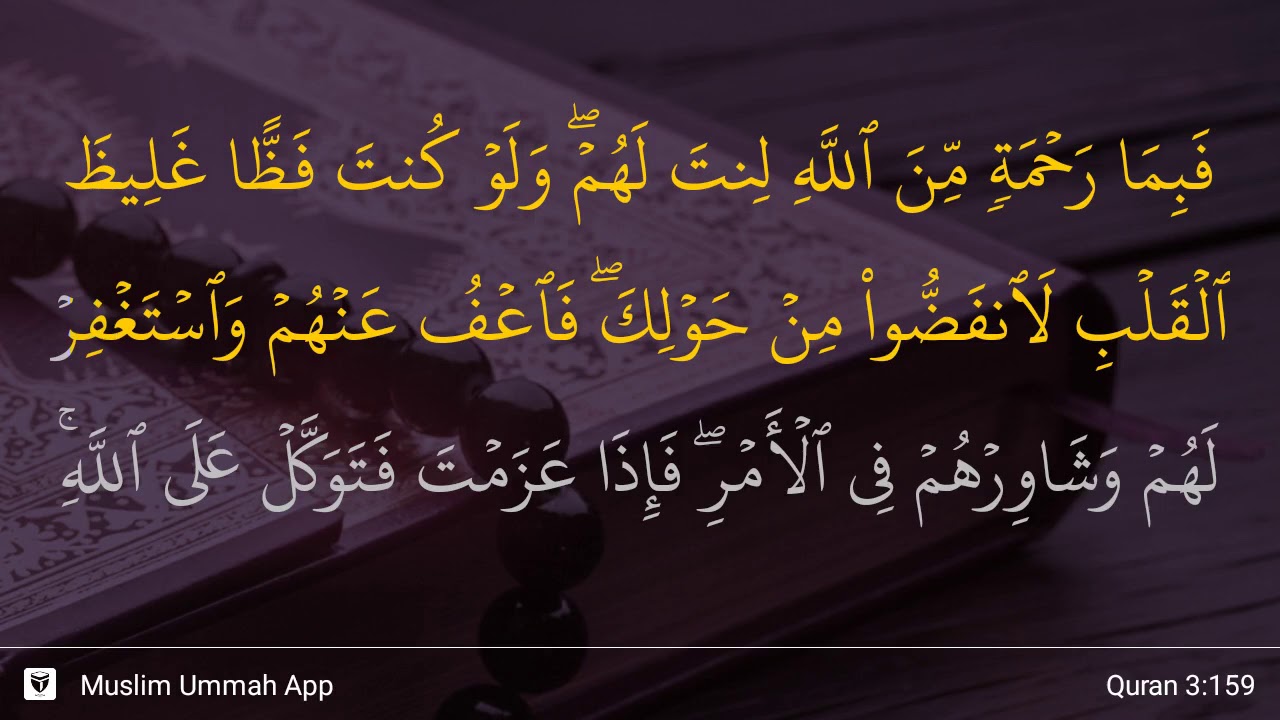 فَبِمَا رَحْمَةٍ مِّنَ ٱللَّهِ لِنتَ لَهُمْ ۖ وَلَوْ كُنتَ فَظًّا غَلِيظَ
ٱلْقَلْبِ لَٱنفَضُّوا۟ مِنْ حَوْلِكَ ۖ فَٱعْفُ عَنْهُمْ وَٱسْتَغْفِرْ
لَهُمْ وَشَاوِرْهُمْ فِى ٱلْأَمْرِ ۖ فَإِذَا عَزَمْتَ فَتَوَكَّلْ عَلَى ٱللَّهِ ۚ
Muslim Ummah App
Quran 3:159